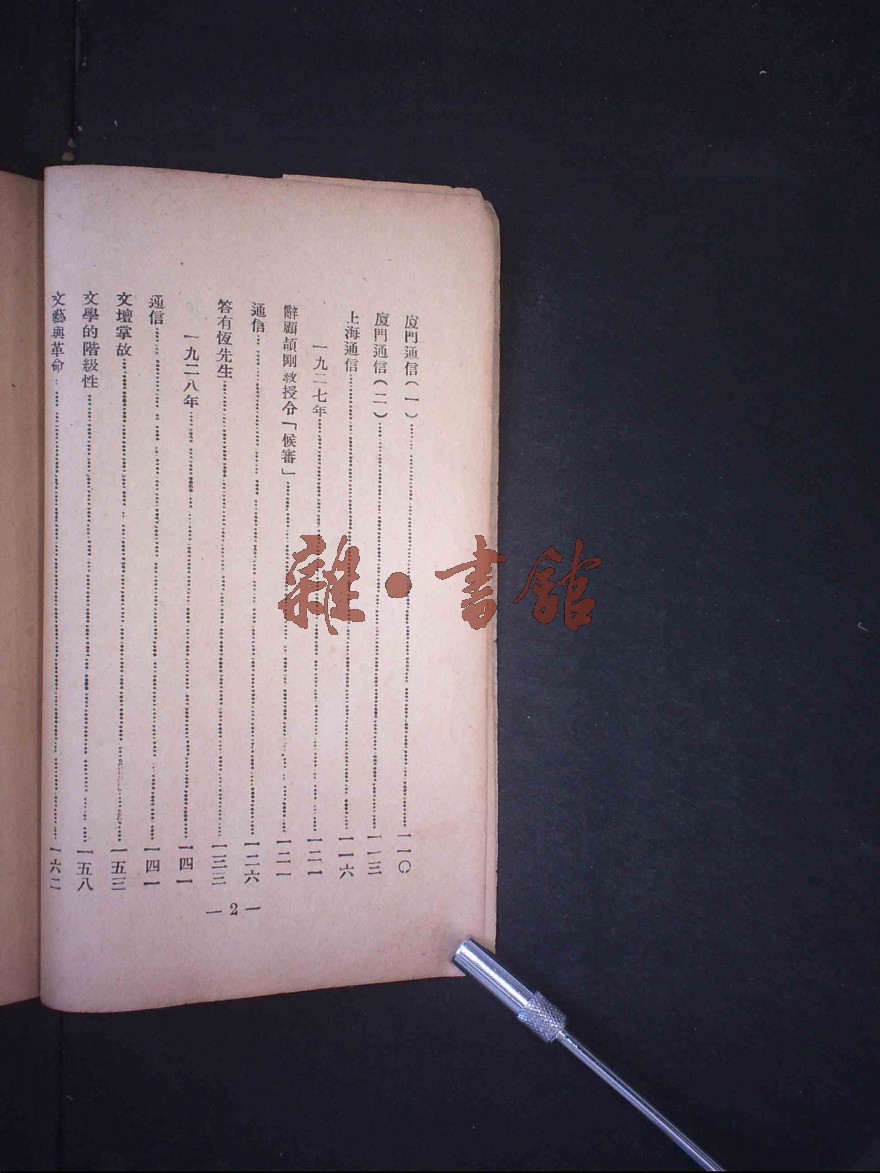 廈門通信(一)……一一〇
廈門通信(二)……一一三
上海通信……一一六
一九二七年……一二一
辭顧頡剛敎授令「候審」……一二一
通信……一二六
答有恆先生……一三三
一九二八年……一四一
通信……一四一
文壇掌故……一五三
文學的階級性……一五八
文藝與革命……一六二
—2—
雜·書館